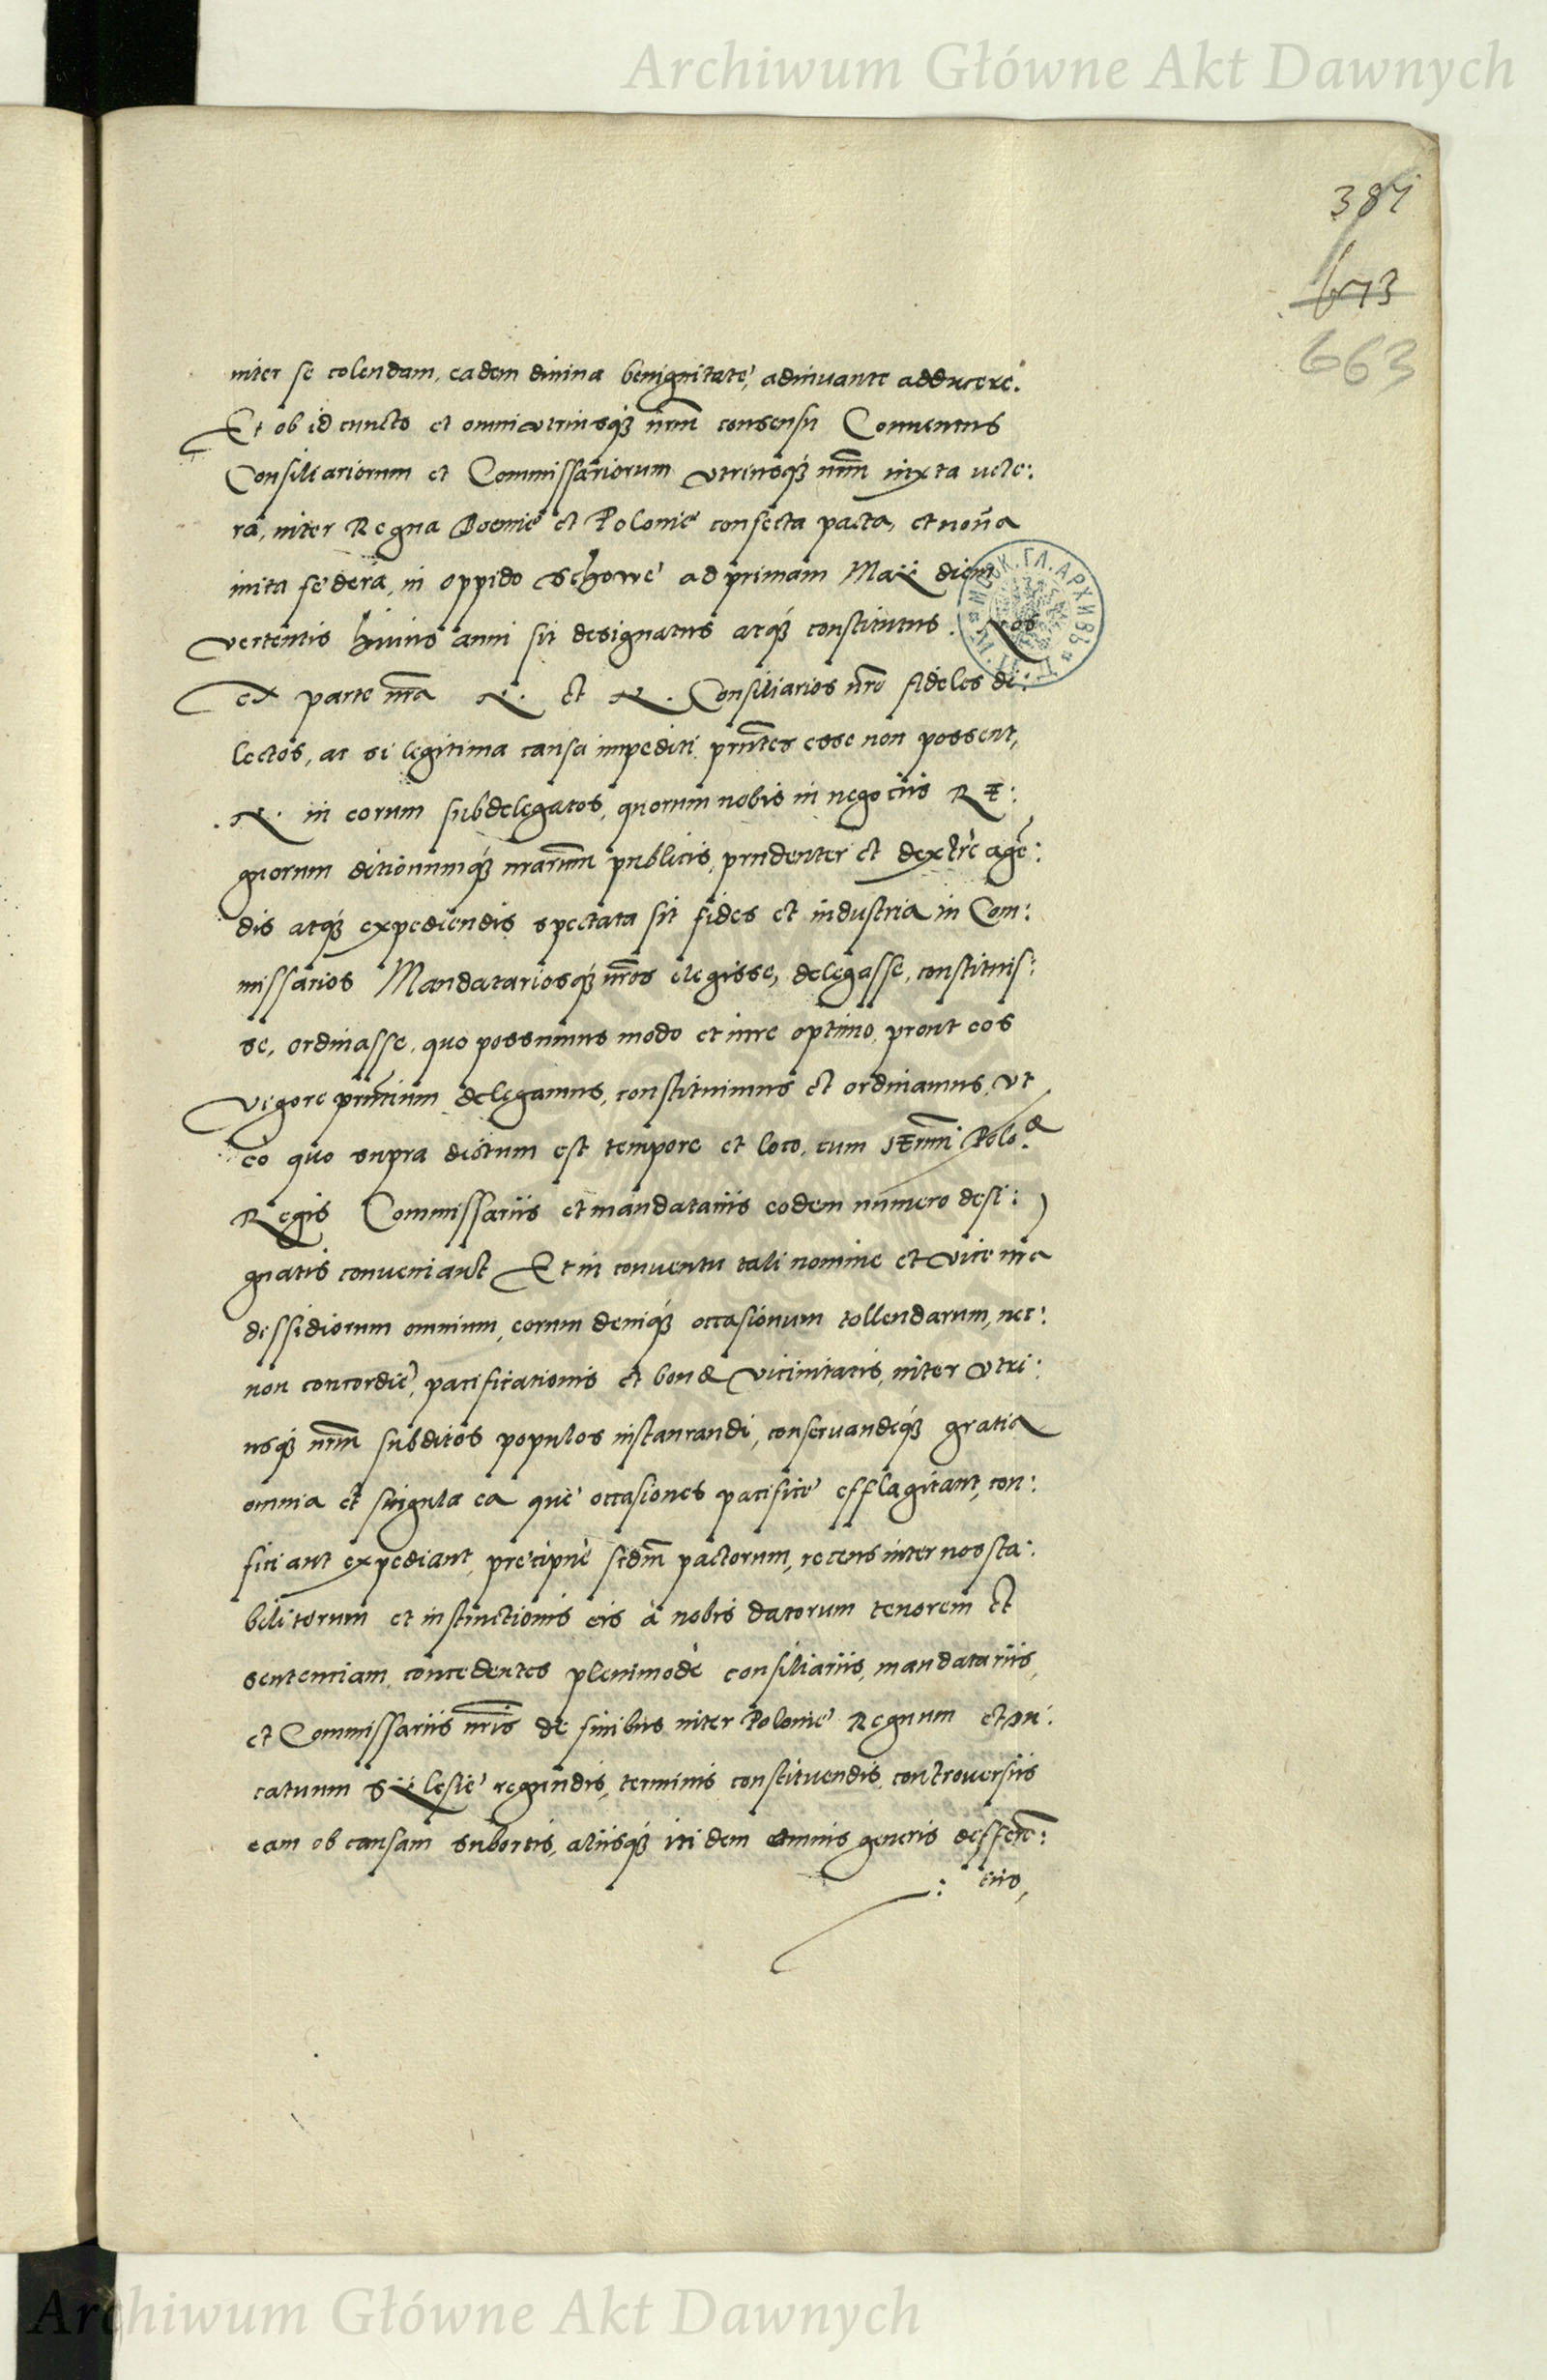 Archiwum Główne Akt Dawnych
387
673
663
inter se colendam, eadem divina benignitate, adiuvante adducere.
Et ob id cuncto et omni utriusq́ nr̃m consensu Conventus
Consiliariorum et Commissariorum utriusq́ nr̃m iuxta vete:
ra, inter Regna Boemie et Polonie confecta pacta, et nova
inita federa, in oppido Schowe ad primam Maÿ diem
vertentis huius anni sit designatus atq́ constitutus. Nos
ex parte nr̃a N. et N. Consiliarios nr̃o fideles di:
lectos, ac si legitima causa impediti pr̃ntes esse non possent,
N. in eorum subdelegatos, quorum nobis in negociis Re:
gnorum ditionumq́ nrarum publicis, prudenter et dextrè agẽ:
dis atq́ expediendis spectata sit fides et industria in Com:
missarios Mandatariosq́ nr̃os elegisse, delegasse, constituis:
se, ordinasse, quo possumus modo et iure optimo, prout eos
vigore pr̃ntium delegamus, constituimus et ordinamus, ut
eò quo supra dictum est tempore et loco, cum SEr̃mi Poloæ
Regis Commissariis et mandatariis eodem numero desi:
gnatis conveniant Et in conventu tali nomine et vice nr̃a
dissidiorum omnium, eorum deniq́ occasionum tollendarum, nec:
non concordie, pacificationis et bonæ vicinitatis, inter utri:
usq́ nr̃m subditos populos instaurandi, conservandiq́ gratia
omnia et singula ea que occasiones pacifice efflagitant, con:
ficiant expediant, precipuè sedm̃ pactorum, recens inter nos sta:
bilitorum et instructionis eis à nobis datorum tenorem et
sentenciam, concedentes plenimodè consiliariis, mandatariis,
et Commissariis nr̃is de finibus inter Polonie Regnum et Du:
catuum Sÿlesie regundis, terminis constituendis, controversiis
eam ob causam subortis, aliisq́ itidem omnis generis differẽ:
: tiis,
Archiwum Główne Akt Dawnych